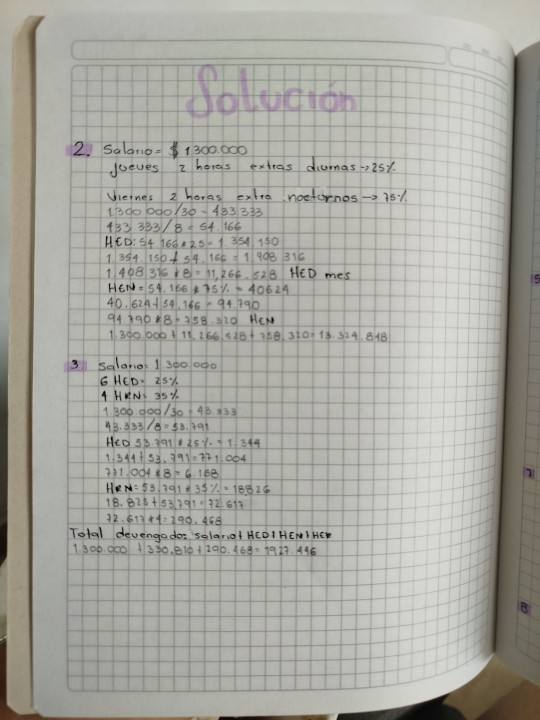 Solución
2. Salario = $ 1,300.000
Jueves 2 horas extras diurnas → 25%
Viernes 2 horas extra nocturnos → 75%
1.300.000/30 = 433.333
433.333/8 = 54.166
HED: 54.166 * 25 = 1.354.150
1.354.150 + 54.166 = 1,408.316
1.408.316 * 8 = 11,266.528 HED mes
HEN = 54.166 * 75% = 40624
40.624 + 54,166 = 94.790
94.790 * 8 = 758.320 HEN
1.300.000 + 11,266.528 + 758.320 = 13.324.848
3 Salario: 1 300.000
6 HED = 25%
4 HRN = 35%
1.300.000/30 = 43.333
43.333/8 = 53.791
HED 53.791 * 25% = 1.344
1.344 + 53.791 = 771.004
771.004 * 8 = 6.168
HRN = 53.791 * 35% = 18826
18.826 + 53,791 = 72.617
72.617 * 4 = 290.468
Total devengado: salario + HED + HEN + HER
1.300.000 + 330,810 + 290.468 = 1927.446
5
7
8